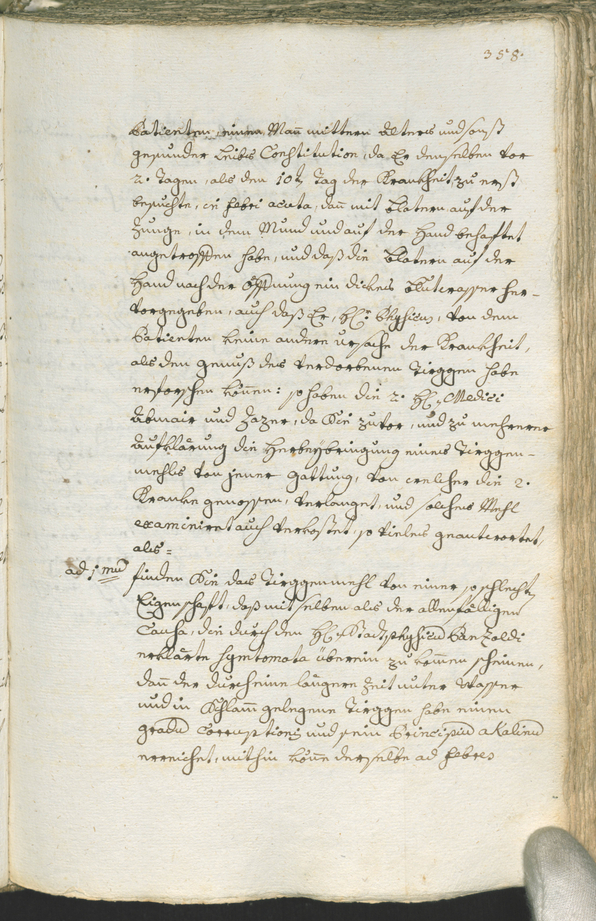 358.
Patienten, einen Mañ mittern Alters und sonst
gesunder Leibs Constitution, da Er denselben vor
2. Tagen, als den 10t Tag der Krankheit zu erst
besuchte, in febri acuta, dañ mit Blatern auf der
Zunge, in dem Mund und auf der Hand behaftet
angetroffen habe, und daß die Blatern auf der
Hand nach der Öffnung ein dickes Blutwasser her-
vorgegeben, auch daß Er, H: Physicus, von dem
Patienten keine andere Ursache der Krankheit,
als den genuß des verdorbenen Türggen habe
erforschen köñen: so haben die 2. H: Medici
und Zazer, da Sie zuvor, und zu mehrerer
Aufklärung die Herbeybringung eines Türggen-
mehls von jener Gattung, von welcher die 2.
Kranke genossen, verlanget, und solches Mehl
examiniret auch verkostet, so vieles geantwortet,
als=
ad 1mū finden Sie das Türggenmehl von einer so schlechten
Eigenschaft, daß mit selben als der allenfälligen
Causa, die durch den H: Stadtphysicū Panzoldi
erklärte Symtomata überein zu komen scheinen,
dañ der durch eine längere Zeit unter Wasser
und in Schlam gelegene Türggen habe einen
gradū Corruptionis und sein Principiū alkalinū
erreichet, mithin köñe derselbe ad febres